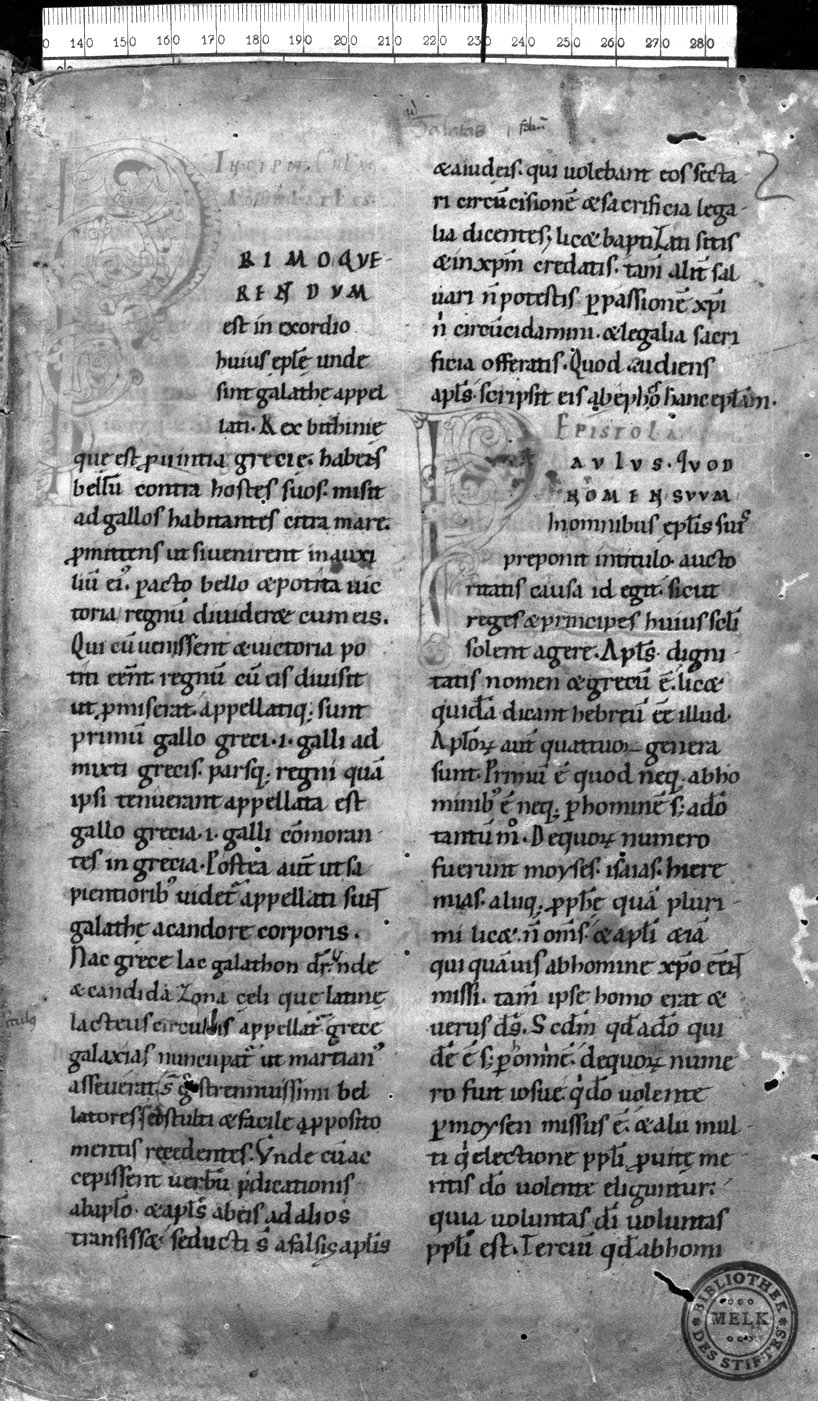 130 140 150 160 170 180 190 200 210 220 230 240 250 260 270 280
ad
Galatas
2
PRIMO QVE
RENDVM
est in exordio
huius eplę unde
sint galathę appel
lati. Rex bithinię
quę est ꝓuintia grecię. habens
bellū contra hostes suos. misit
ad gallos habitantes citra mare.
ꝓmittens ut si uenirent in auxi
liū ei᾽. pacto bello & potita uic
toria regnū diuideret cum eis.
Qui cū uenissent & uictoria po
titi eēnt. regnū cū eis diuisit
ut ꝓmiserat. appellatiq; sunt
primū gallo greci .i. galli ad
mixti grecis. parsq; regni quā
ipsi tenuerant appellata est
gallo grecia .i. galli cōmoran
tes in grecia. Postea aut̄ ut sa
pientiorib᾽ uidet᷑ appellati sunt
galathę a candore corporis.
Nac grece lac galathon dr̄. Vnde
& candida zona cęli quę latine
lacteus circulus appellat᷑ grece
galaxias nuncupat᷑ ut martian᾽
asseuerat. s̄ g᷒ strennuissimi bel
latores sed stulti & facile a ꝓposito
mentis recedentes. Vnde cū ac
cepissent uerbū p̄dicationis
ab aplo. & apl̄s ab eis ad alios
transisset seducti s̄ a falsis apl̄is
& a iudeis. qui uolebant eos secta
ri circūcisionē & sacrificia lega
lia dicentes; licet baptizati sitis
& in xp̄m credatis. tam̄ alit̄ sal
uari n̄ potestis. ꝑ passionē xp̄i
n̄ circūcidamini. & legalia sacri
ficia offeratis. Quod audiens
apl̄s. scripsit eis ab epho hanc eplam.
EPISTOLA
PAVLVS. Quod
NOMEN SVVM
In omnibus epl̄is sui᾽
preponit in titulo. aucto
ritatis causa id egit. sicut
reges & principes huius scl̄i
solent agere. Apl̄s digni
tatis nomen & grecū ē. licet
quidā dicant hebreū eē illud.
Apl̄oꝝ aut̄ quattuor genera
sunt. Primū ē quod neq; ab ho
minib᾽ ē neq; ꝑ hominē s; a do
tantū m̊. De quoꝝ numero
fuerunt moyses. isaias. hiere
mias. aliiq; ꝓphę quā pluri
mi licet. n̄ om̄s. & apl̄i & iā
qui quāuis ab homine xp̄o eēnt
missi. tam̄ ipse homo erat &
uerus ds̄. Scdm̄ qd̄ a do qui
dē ē s; ꝑ hoīnē. de quoꝝ nume
ro fuit iosue. qđ do uolente
ꝑ moysen missus ē. & alii mul
ti q̇ electione ppl̄i ꝓ uitę me
ritis do uolente eliguntur.
quia uoluntas dī uoluntas
ppl̄i est. Terciū qd̄ ab homi
BIBLIOTHEK
MELK
DES STIFTES